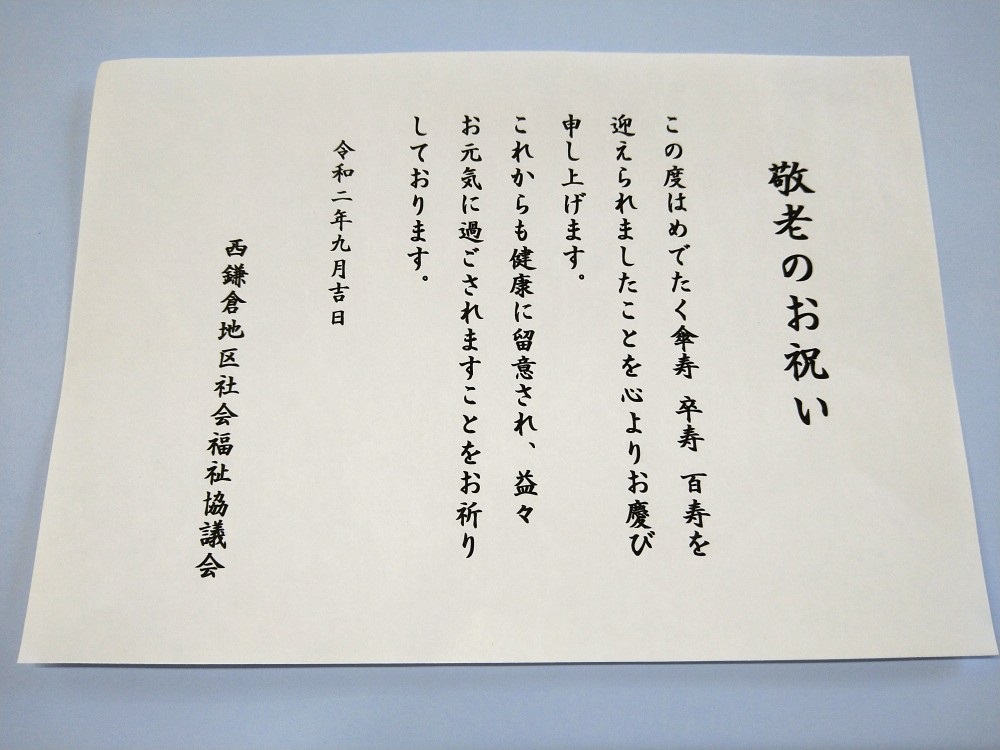 敬老のお祝い
この度はめでたく傘寿 卒寿 百寿を
迎えられましたことを心よりお慶び
申し上げます。
これからも健康に留意され、益々
お元気に過ごされますことをお祈り
しております。
令和二年九月吉日
西鎌倉地区社会福祉協議会